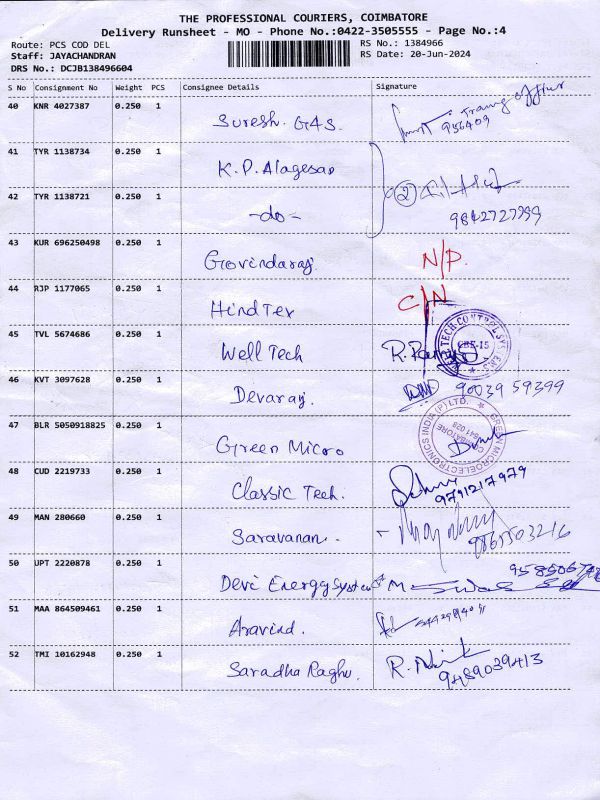 THE PROFESSIONAL COURIERS, COIMBATORE
Delivery Runsheet - MO - Phone No.:0422-3505555 - Page No.:4
Route: PCS COD DEL
Staff: JAYACHANDRAN
DRS No.: DCJB138496604
RS No.: 1384966
RS Date: 20-Jun-2024
S No Consignment No Weight PCS Consignee Details Signature
40 KNR 4027387 0.250 1 Suresh. G4S.
956409
41 TYR 1138734 0.250 1 K.P. Alagesan
42 TYR 1138721 0.250 1 -do- 2
9842727399
43 KUR 696250498 0.250 1 Govindaraj N/P.
44 RJP 1177065 0.250 1 Hind Tex C/N
45 TVL 5674686 0.250 1 Well Tech R.
CBE-15
46 KVT 3097628 0.250 1 Devaraj. 90039 59399
47 BLR 5050918825 0.250 1 Green Micro
GREEN MICROELECTRONICS INDIA (P) LTD.
COIMBATORE
641 029
48 CUD 2219733 0.250 1 Classic Tech.
9791217979
49 MAN 280660 0.250 1 Saravanan.
9865503216
50 UPT 2220878 0.250 1 Devi Energy Systems
51 MAA 864509461 0.250 1 Aravind.
52 TMI 10162948 0.250 1 Saradha Raghu. R.
9489039413